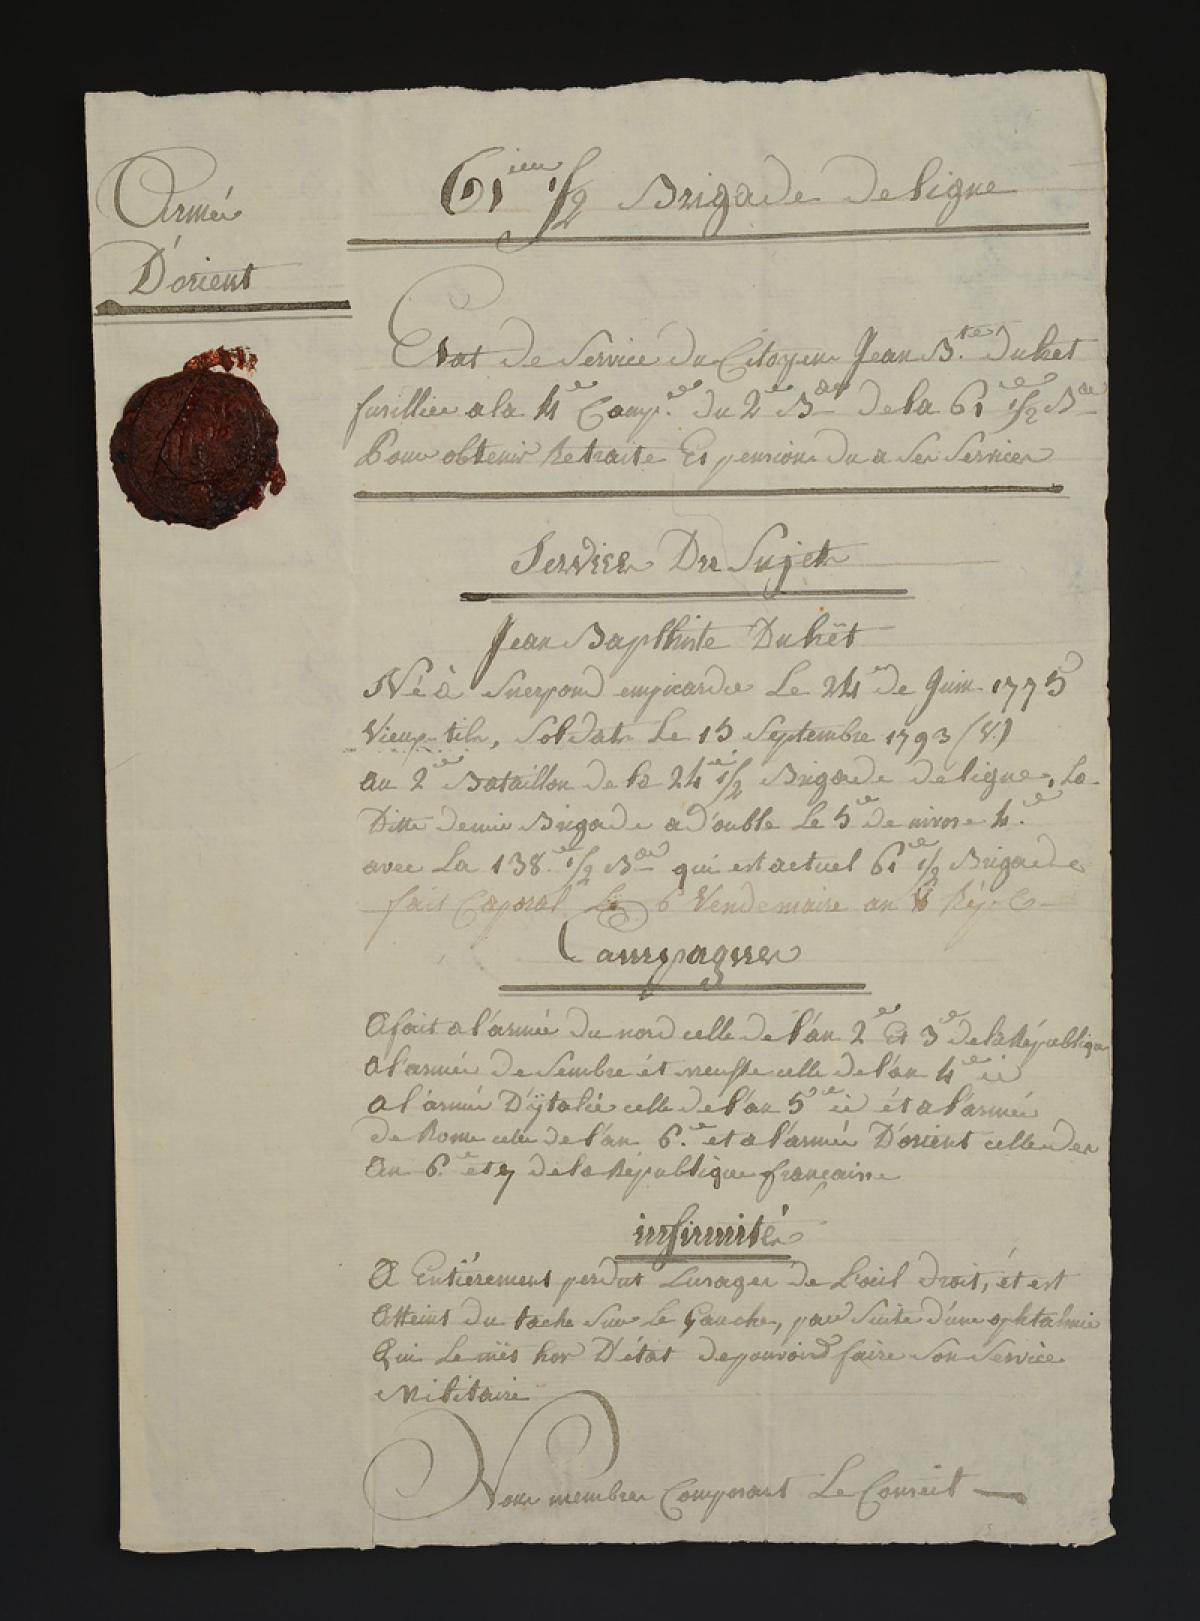 Armée
D'orient
61ieme 1/2 Brigade de ligne
Etat de Service du Citoyen Jean B.te duhet
fusillier a la 4e Comp.e du 2e Bon de la 61e 1/2 Bde
Pour obtenir Retraite Et pension du a Ses Services
Services Du Sujet
Jean Bapthiste Duhêt
Né à en picardie Le 24 de Juin 1775
Vieux stile, Soldat Le 15 Septembre 1793 (V.)
au 2e Bataillon de la 24e 1/2 Brigade de ligne, La
Ditte demie Brigade a d'ouble Le 5e de nivose 4.e
avec La 138.e 1/2 Bde qui est actuel 61e 1/2 Brigade
fait Caporal Le 6 Vendemiaire an 8 Rép.
Campagnes
A fait a l'armée du nord celle de l'an 2e Et 3e de la République
a l'armée de Sembre et meusse celle de l'an 4e
a l'armée D'ÿtalie celle de l'an 5e et a l'armée
de Rome celle de l'an 6.e et a l'armée D'orient celle des
An 6.e et 7 de la République francaisse
infirmités
A Entiérement perdut Lusages de L'oeil droit, ét est
Atteint du tache Sur Le Gauche, par Suite d'une ophtalmie
Qui Le mës hor D'état de pouvoir faire Son Service
Militaire
Nous membres Composant Le Conseil